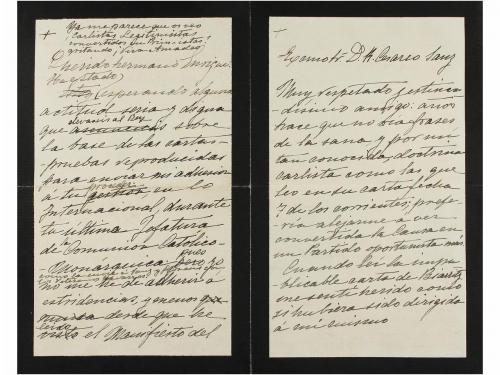 Ya me parece que os veo
Carlistas Legitimistas
convertidos en
gritando; Viva Amadeo!
Querido hermano Enrique
He estado
esperando alguna
actitud seria y digna
devanis al Rey
que sobre
la base de las cartas-
pruebas reproducidas
para enviar mi adhesion
a tu gestion en lo
Internacional, durante
tu ultima Jefatura
de la Comunion Católico-
-Monárquica pero
no me he de adherir a
estridencias, y menos
desde que he
leido el Manifiesto del
Exmo Sr D. H. Cesareo Sanz
Muy respetado y distin-
-guido amigo: años
hace que no oia frases
de la sana y por mi
tan conocida, doctrina
carlista como las que
leo en su carta fecha
7 de los corrientes; prefe-
-ria alejarme a ver
convertida la Causa en
un Partido oportunista más.
Cuando lei la impu-
blicable carta de Biarritz
me senti herido como
si hubiera sido dirigida
á mi mismo